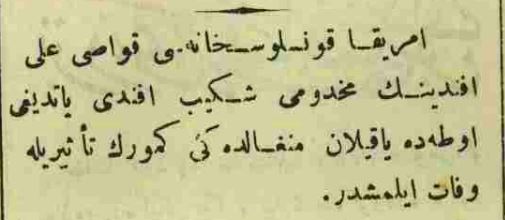 امریقـا قونـسلوسـخانه‌سی قواصی علی
افندینـك مخدومی شـكیب افندی یاتدیغی
اوطه‌ده یاقیلان منغـالده‌كی كمورك تأثیریله
وفات ایلمشدر.